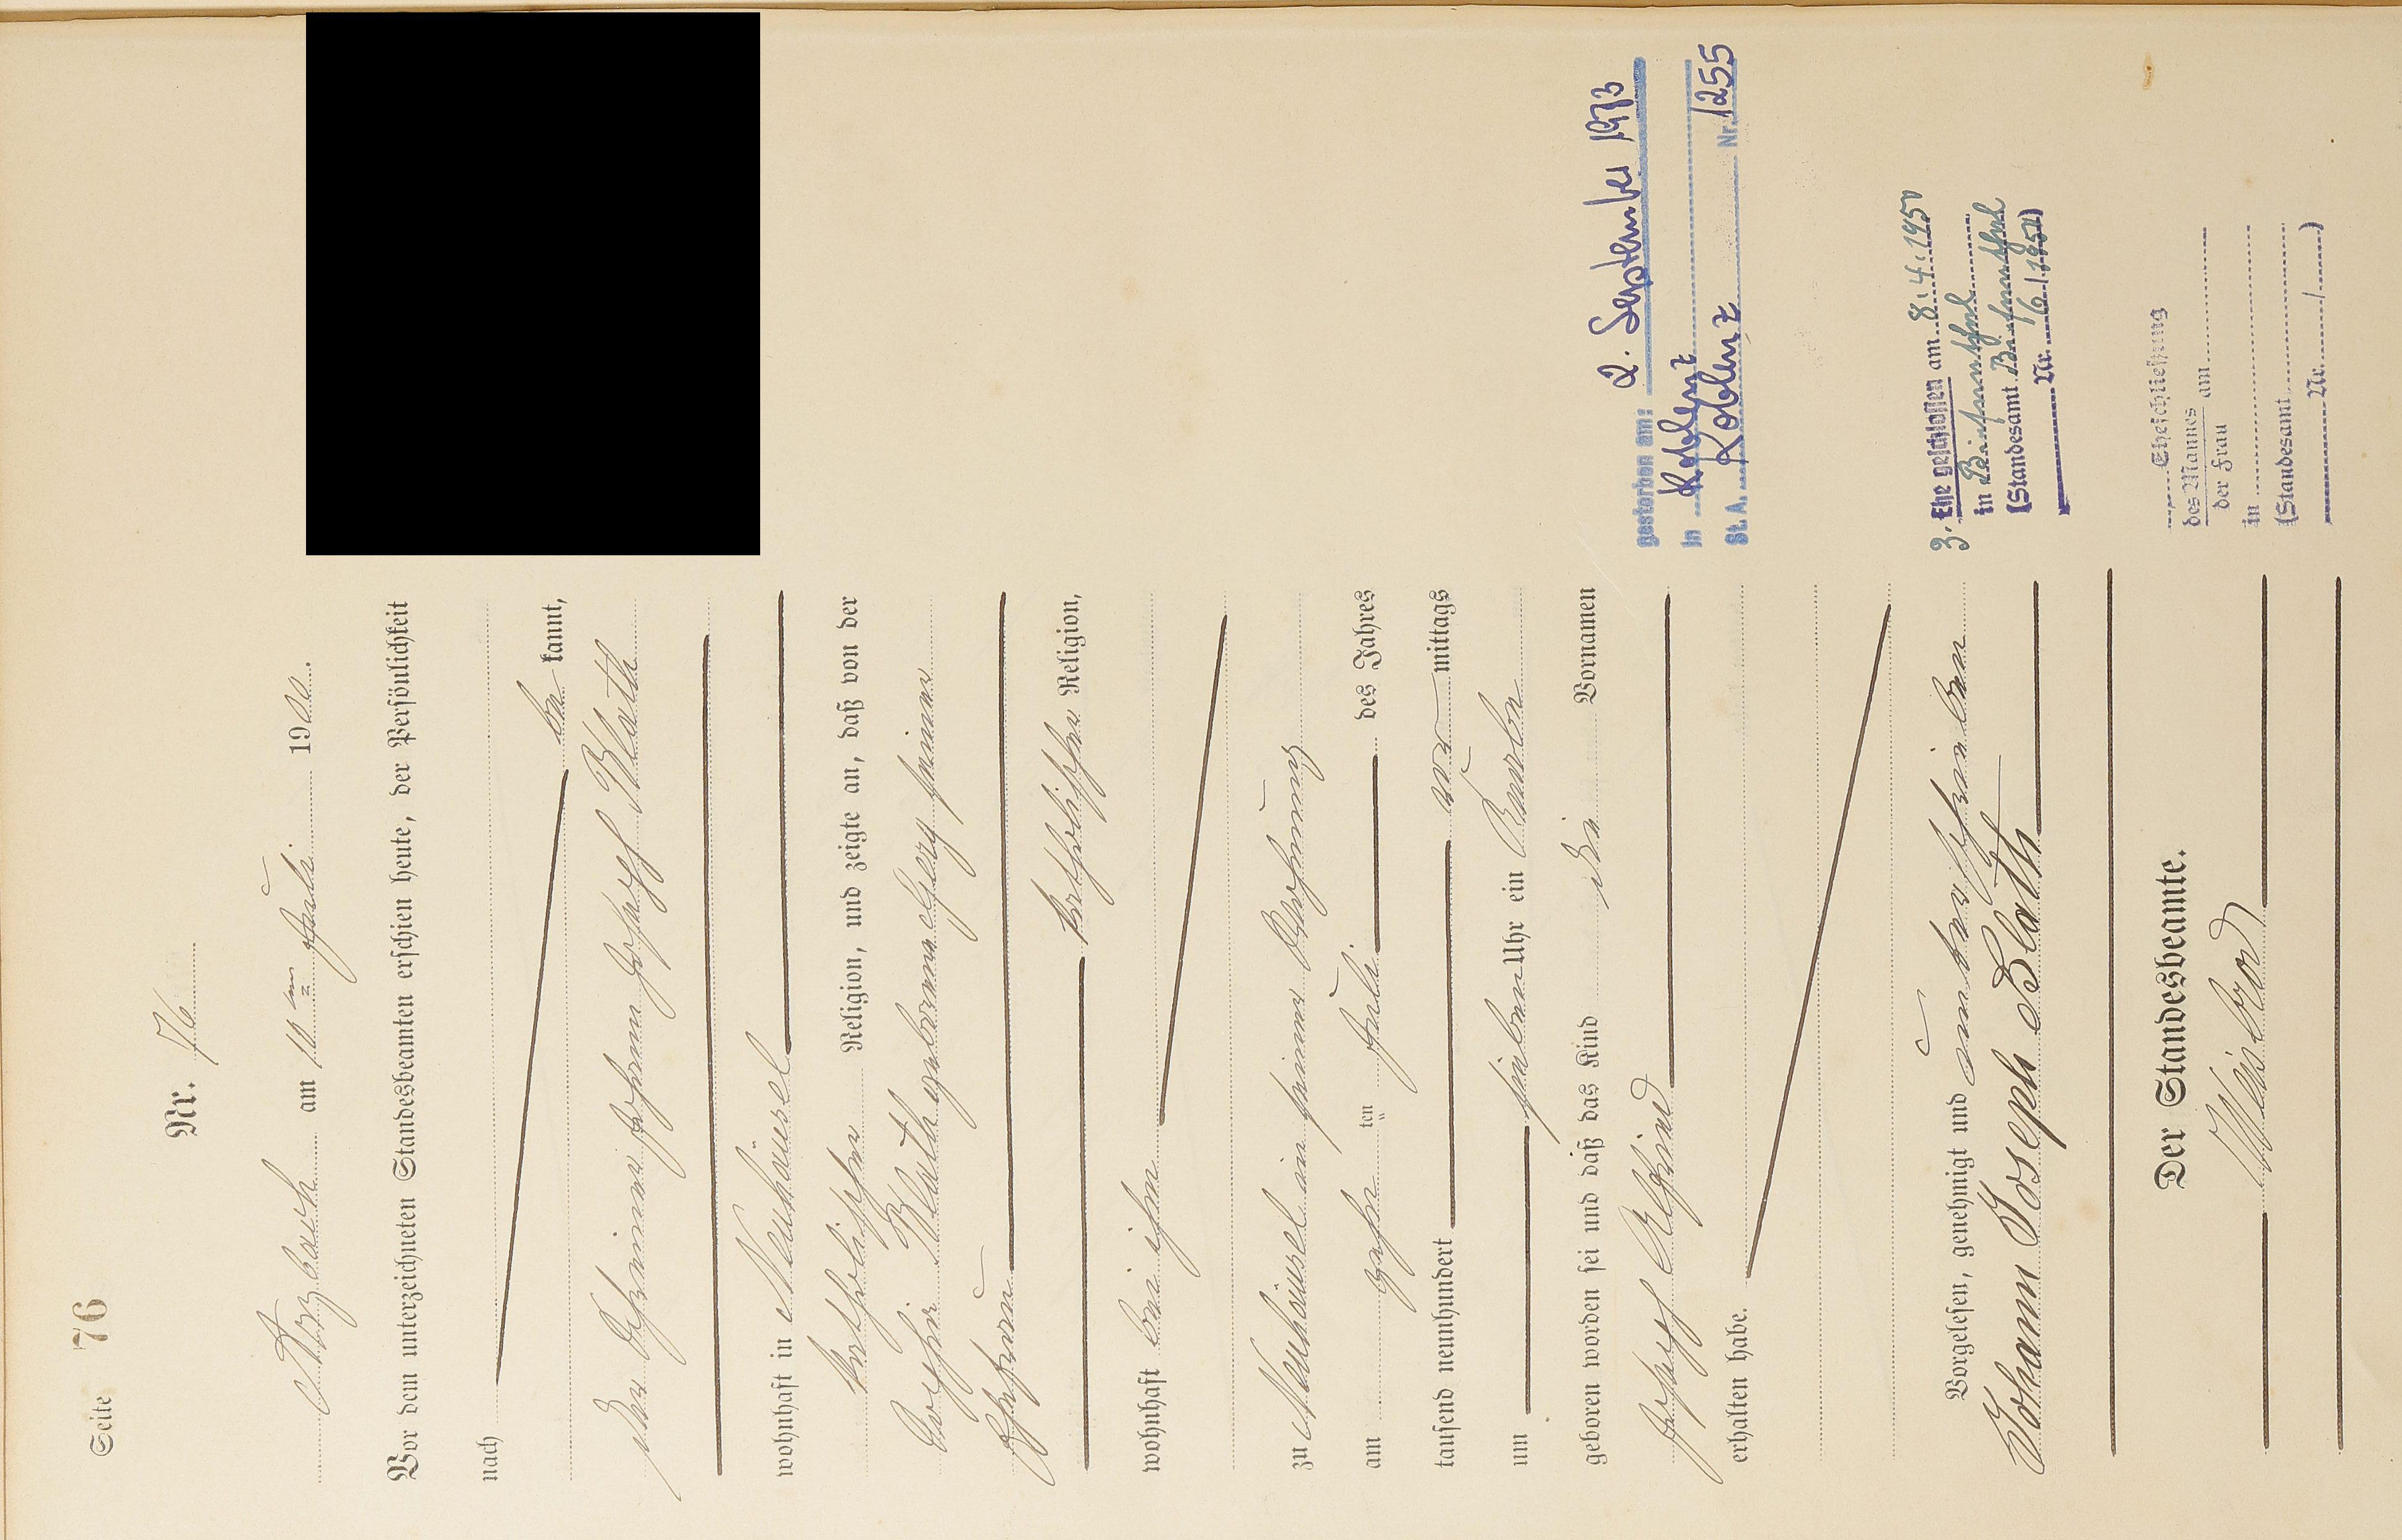 Seite 76
Nr. 76
Arzbach am 10ten Juli 1900.
Vor dem unterzeichneten Standesbeamten erschien heute, der Persönlichkeit
nach
be kannt,
der Schreiner Johann Joseph Blath
wohnhaft in Neuhäusel
katholischer Religion, und zeigte an, daß von der
Sophie Blath geborene seiner
Ehefrau
katholischer Religion,
wohnhaft bei ihm
zu Neuhäusel in seiner Wohnung
am zehnten Juli des Jahres
tausend neunhundert vor mittags
um sieben Uhr ein Knabe
geboren worden sei und daß das Kind die Vornamen
Joseph Alfred
erhalten habe.
Vorgelesen, genehmigt und unterschrieben
Johann Joseph Blath
Der Standesbeamte.
gestorben am: 2. September 1973
in Koblenz
St. A. Koblenz Nr. 1255
3. Ehe geschlossen am 8.4.1950
in
(Standesamt
Nr. 16/1950)
Eheschließung
des Mannes am
der Frau
in
(Standesamt
Nr. / )